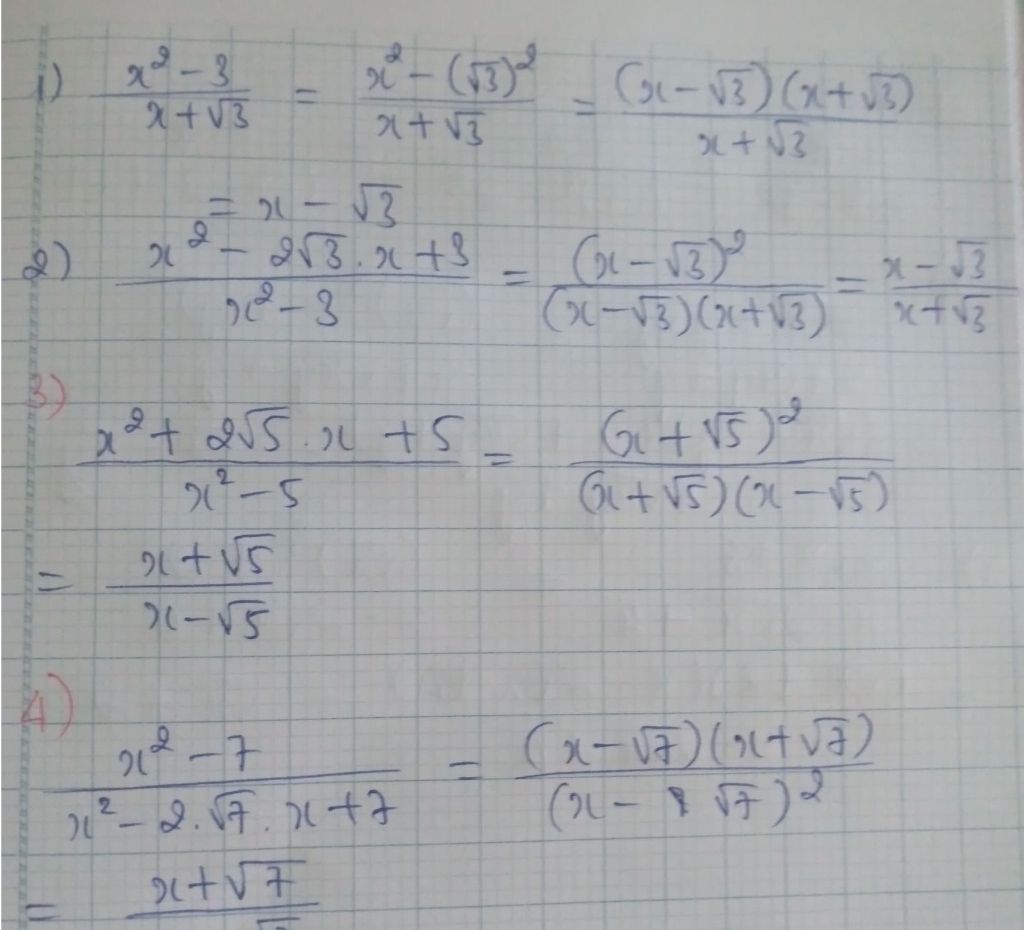 1) (x² - 3)/(x + √3) = (x² - (√3)²)/(x + √3) = ((x - √3)(x + √3))/(x + √3)
= x - √3
2) (x² - 2√3 . x + 3)/(x² - 3) = (x - √3)²/((x - √3)(x + √3)) = (x - √3)/(x + √3)
3)
(x² + 2√5 . x + 5)/(x² - 5) = (x + √5)²/((x + √5)(x - √5))
= (x + √5)/(x - √5)
4)
(x² - 7)/(x² - 2.√7. x + 7) = ((x - √7)(x + √7))/(x - √7)²
= x + √7